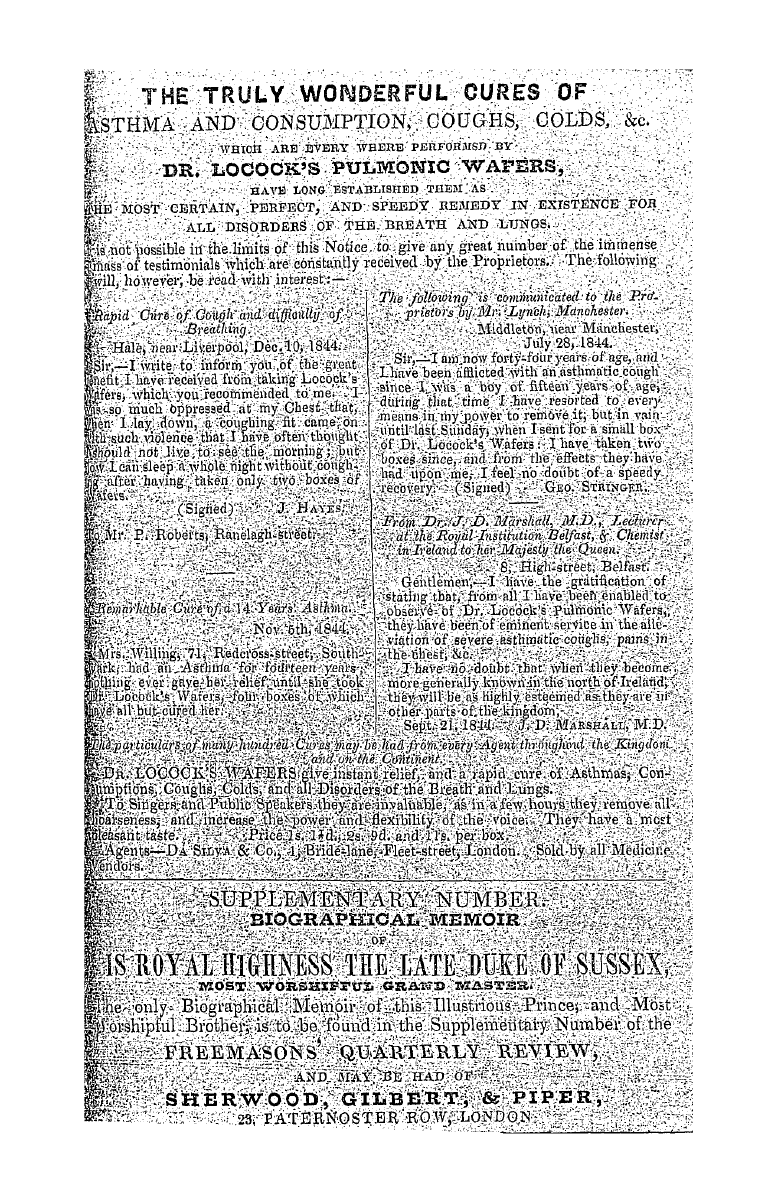 THE TRULY WONDERFUL CURES OF
ASTHMA AND CONSUMPTION, COUGHS, COLDS, &c.
WHICH ARE EVERY WHERE PERFORMSD BY
DR. LOCOCK'S PULMONIC WAFERS,
HAVE LONG ESTABLISHED THEM AS
THE MOST CERTAIN, PERFECT, AND SPEEDY REMEDY IN EXISTENCE FOR
ALL DISORDERS OF THE BREATH AND LUNGS.
is not possible in the limits of this Notice to give any great number of the immense
mass of testimonials which are constantly received by the Proprietors. The following
will, however, be read with interest:—
Rapid Cure of Cough and difficulty of
Breathing.
Hale, near Liverpool, Dec. 10, 1844.
Sir,—I write to inform you of the great
benefit I have received from taking Locock's
Wafers, which you recommended to me. I
was so much oppressed at my Chest that,
when I lay down, a coughing fit came on
with such violence that I have often thought
should not live to see the morning; but
now I can sleep a whole night without cough-
ing after having taken only two boxes of
Wafers.
(Signed) J. HAYES.
To Mr. P. Roberts, Ranelagh-street.
Remarkable Cure of a 14 Years' Asthma.
Nov. 5th, 1844.
Mrs. Willing, 71, Redcross-street, South-
wark, had an Asthma for fourteen years;
nothing ever gave her relief until she took
Dr. Locock's Wafers, four boxes of which
have all but cured her.
The following is communicated to the Pro-
prietors by Mr. Lynch, Manchester.
Middleton, near Manchester,
July 28, 1844.
Sir,—I am now forty-four years of age, and
I have been afflicted with an asthmatic cough
since I was a boy of fifteen years of age;
during that time I have resorted to every
means in my power to remove it, but in vain
until last Sunday, when I sent for a small box
of Dr. Locock's Wafers: I have taken two
boxes since, and from the effects they have
had upon me, I feel no doubt of a speedy
recovery. (Signed) GEO. STRINGER.
From Dr. J. D. Marshall, M.D., Lecturer
at the Royal Institution Belfast, & Chemist
in Ireland to her Majesty the Queen.
8, High-street, Belfast.
Gentlemen,—I have the gratification of
stating that, from all I have been enabled to
observe of Dr. Locock's Pulmonic Wafers,
they have been of eminent service in the alle-
viation of severe asthmatic coughs, pains in
the chest, &c.
I have no doubt that when they become
more generally known in the north of Ireland,
they will be as highly esteemed as they are in
other parts of the kingdom,
Sept. 21, 1844. J. D. MARSHALL, M.D.
The particulars of many hundred Cures may be had from every Agent throughout the Kingdom
and on the Continent.
DR. LOCOCK'S WAFERS give instant relief, and a rapid cure of Asthmas, Con-
sumptions, Coughs, Colds, and all Disorders of the Breath and Lungs.
To Singers and Public Speakers they are invaluable, as in a few hours they remove all
hoarseness, and increase the power and flexibility of the voice. They have a most
pleasant taste. Price 1s. 1½d., 2s. 9d. and 11s. per box.
Agents—DA SILVA & Co., 1, Bride-lane, Fleet-street, London. Sold by all Medicine
Vendors.
SUPPLEMENTARY NUMBER.
BIOGRAPHICAL MEMOIR
OF
HIS ROYAL HIGHNESS THE LATE DUKE OF SUSSEX,
MOST WORSHIPFUL GRAND MASTER.
The only Biographical Memoir of this Illustrious Prince, and Most
Worshipful Brother, is to be found in the Supplementary Number of the
FREEMASONS' QUARTERLY REVIEW,
AND MAY BE HAD OF
SHERWOOD, GILBERT, & PIPER,
23, PATERNOSTER ROW, LONDON.